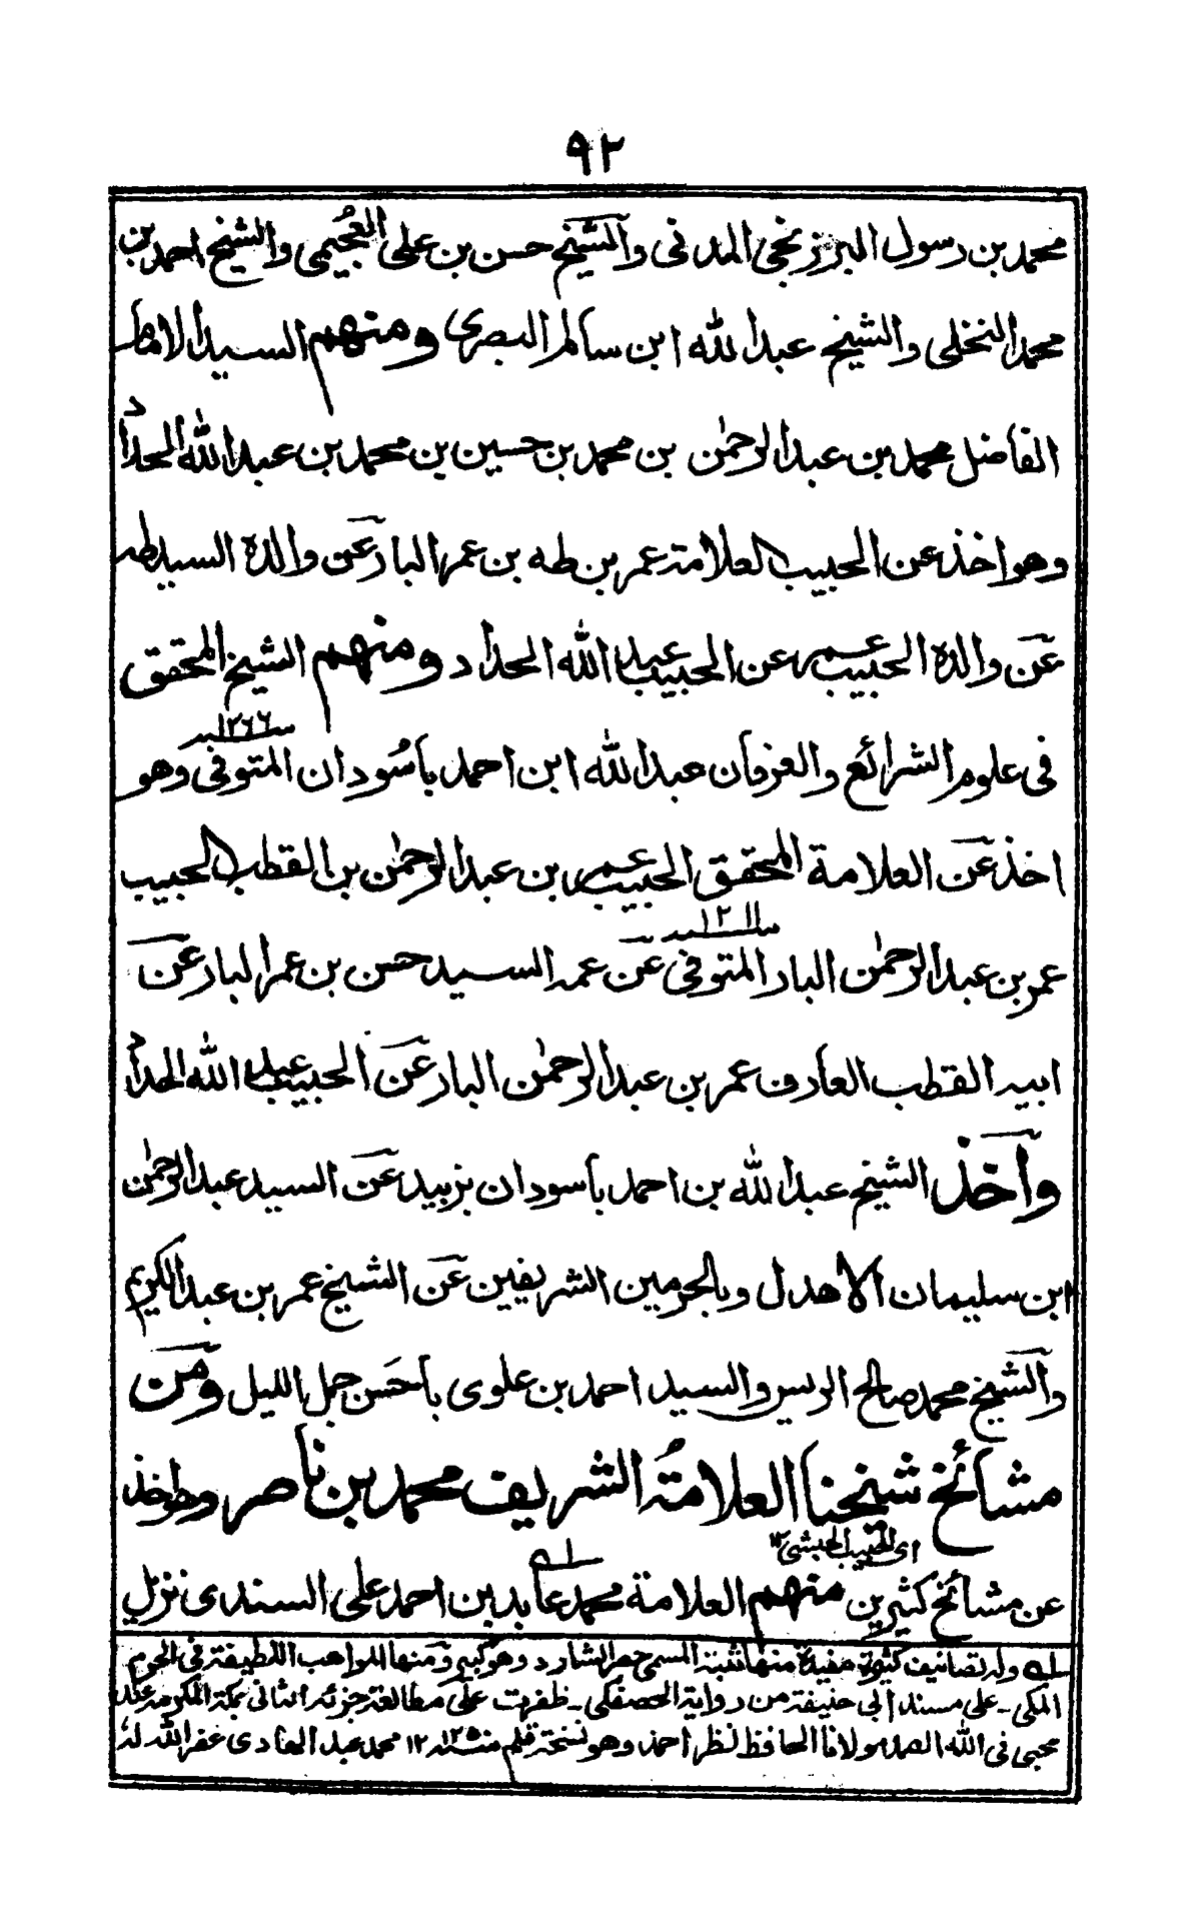 ٩٢
محمد بن رسول البرزنجی المدنی والشیخ حسن بن علی العُجیمی والشیخ احمد بن
محمد النخلی والشیخ عبد الله ابن سالم البصری ومنهم السید الامام
الفاضل محمد بن عبد الرحمٰن بن محمد بن حسین بن محمد بن عبد الله الحداد
وهو اخذ عن الحبیب العلامة عمر بن طه بن عمر البار عن والدہ السید طه
عن والدہ الحبیب عمر عن الحبیب عبد الله الحداد ومنهم الشیخ المحقق
فی علوم الشرائع والعرفان عبد الله ابن احمد باسُودان المتوفی سنه ١٢٦٦ وهو
اخذ عن العلامة المحقق الحبیب عمر بن عبد الرحمٰن بن القطب الحبیب
عمر بن عبد الرحمٰن البار المتوفی سنه ١٢١١ عن عمه السید حسن بن عمر البار عن
ابیه القطب العارف عمر بن عبد الرحمٰن البار عن الحبیب عبد الله الحداد
واخذ الشیخ عبد الله بن احمد باسودان بزبید عن السید عبد الرحمٰن
ابن سلیمان الاهدل وبالحرمین الشریفین عن الشیخ عمر بن عبد الکریم
والشیخ محمد صالح الریس والسید احمد بن علوی باحَسن جمل اللیل ومن
مشائخ شیخنا العلامةُ الشریف محمد بن ناصر وهو اخذ
ای للحبیب الحبشی ١٢
عن مشائخ کثیرین منهم العلامة محمد عابد بن احمد علی السندی نزیل
له وله تصانیف کثیرة مفیدة منها ثبته المسمی حصر الشارد وهو کبیر ومنها المواهب اللطیفة فی الحرم
المکی ـ علی مسند ابی حنیفة من روایة الحصفکی ـ ظفرت علی مطالعة جزئه الثانی بمکة المکرمة عند
محبی فی الله الصمد مولانا الحافظ نظر احمد وهو نسخة قلم سنه ١٢٥٠ ١٢ محمد عبد الهادی غفر الله له